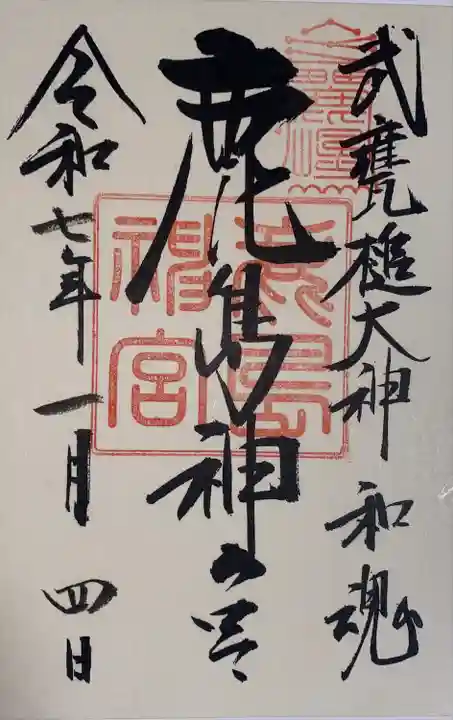 武甕槌大神 和魂
鹿島神宮
令和七年一月四日
鹿島
神宮